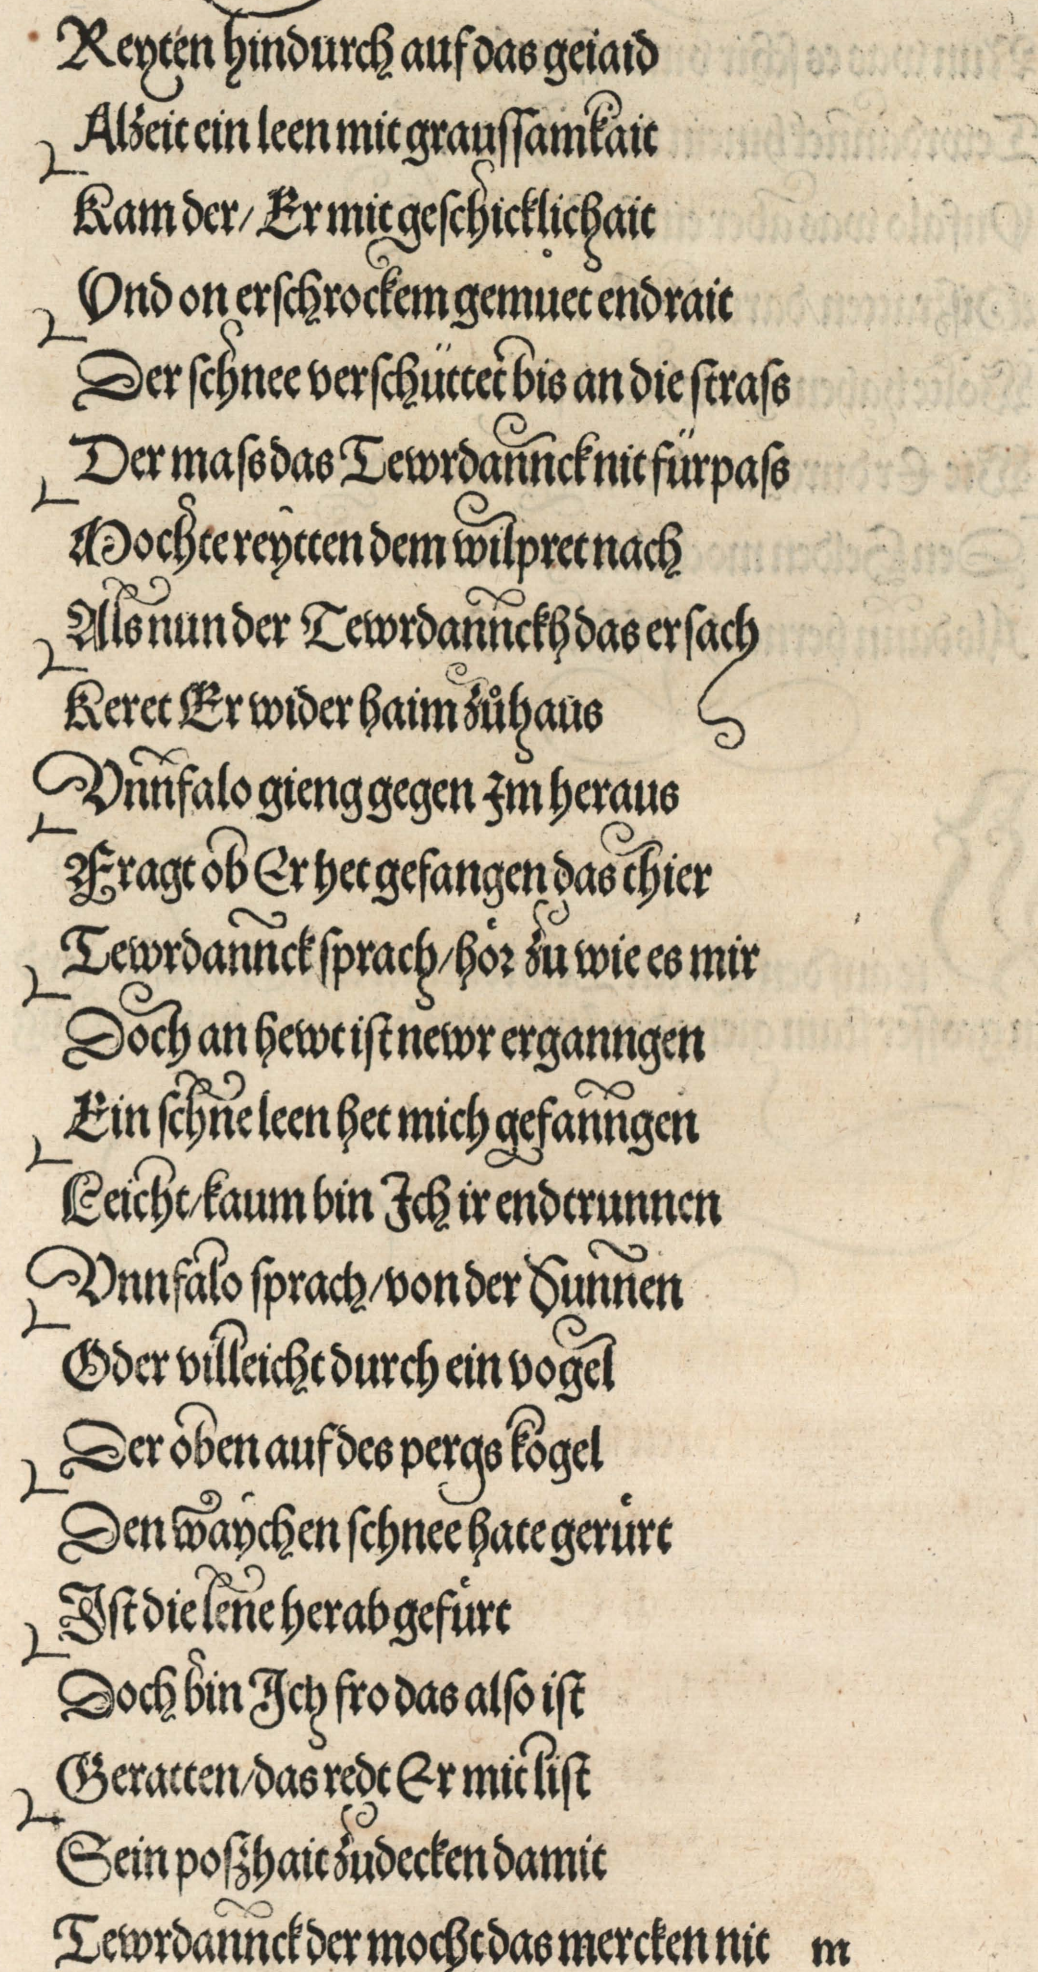 Reyten hindurch auf das geiaid
Alzeit ein leen mit graussamkait
Kam der/ Er mit geschicklichait
Vnd on erschrockem gemuet endrait
Der schnee verschüttet bis an die strass
Der mass das Tewrdannck nit fürpass
Mochte reytten dem wilpret nach
Als nun der Tewrdannckh das ersach
Keret Er wider haim zůhaus
Vnnfalo gieng gegen Im heraus
Fragt ob Er het gefangen das thier
Tewrdannck sprach/hör zu wie es mir
Doch an hewt ist newr erganngen
Ein schne leen het mich gefanngen
Leicht/kaum bin Ich ir endtrunnen
Vnnfalo sprach/von der Sunnen
Oder villeicht durch ein vogel
Der oben auf des pergs kogel
Den waychen schnee hate gerürt
Ist die lene herab gefürt
Doch bin Ich fro das also ist
Geratten/das redt Er mit list
Sein poszhait zudecken damit
Tewrdannck der mocht das mercken nit m